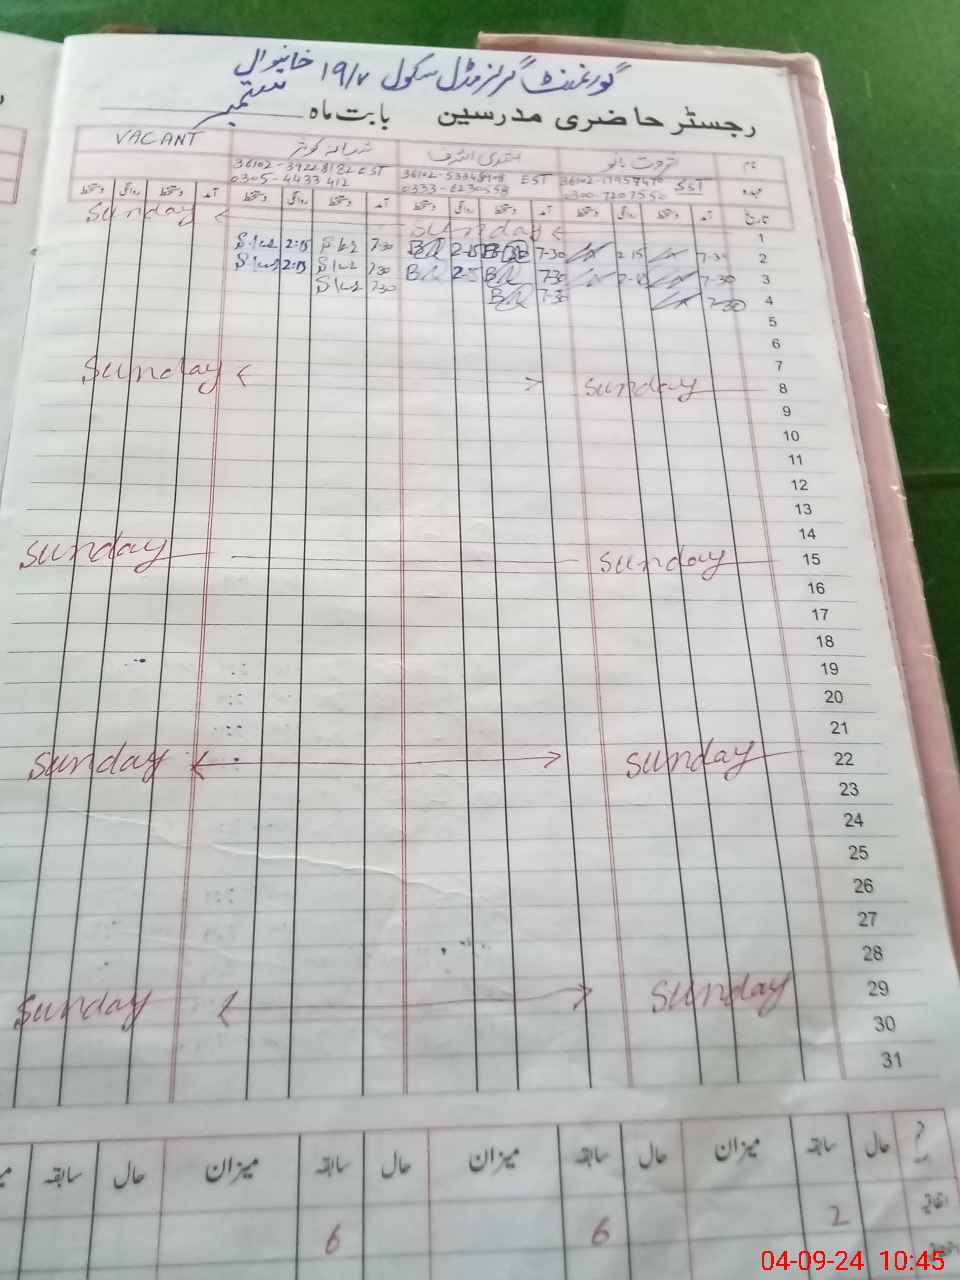 گورنمنٹ گرلز مڈل سکول 19/V خانیوال
رجسٹر حاضری مدرسین بابت ماہ ستمبر
نام ثروت بانو بشریٰ اشرف VACANT
عہدہ SST EST 36102-3922818 EST
0300-7207550 0333-6230558 0305-4433412
تاریخ آمد دستخط روانگی دستخط آمد دستخط روانگی دستخط آمد دستخط روانگی دستخط آمد دستخط روانگی دستخط
1 Sunday Sunday
2 7-30 2.15 7-30 2-15 7-30 2-15
3 7-30 7-30 2-5 7-30 2-15
4 7-30 7-30 7-30
5
6
7
8 Sunday Sunday
9
10
11
12
13
14
15 Sunday Sunday
16
17
18
19
20
21
22 Sunday Sunday
23
24
25
26
27
28
29 Sunday Sunday
30
31
حال سابقہ میزان حال سابقہ میزان حال سابقہ میزان حال سابقہ
اتفاقیہ 2 6 6
04-09-24 10:45